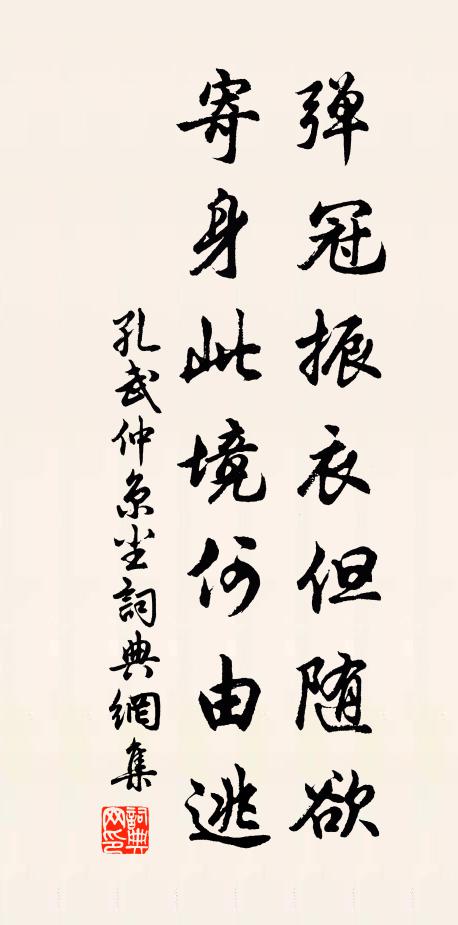 弹冠振衣但随欲
寄身此境何由逃
孔武仲京尘詞典網集
詞典网印